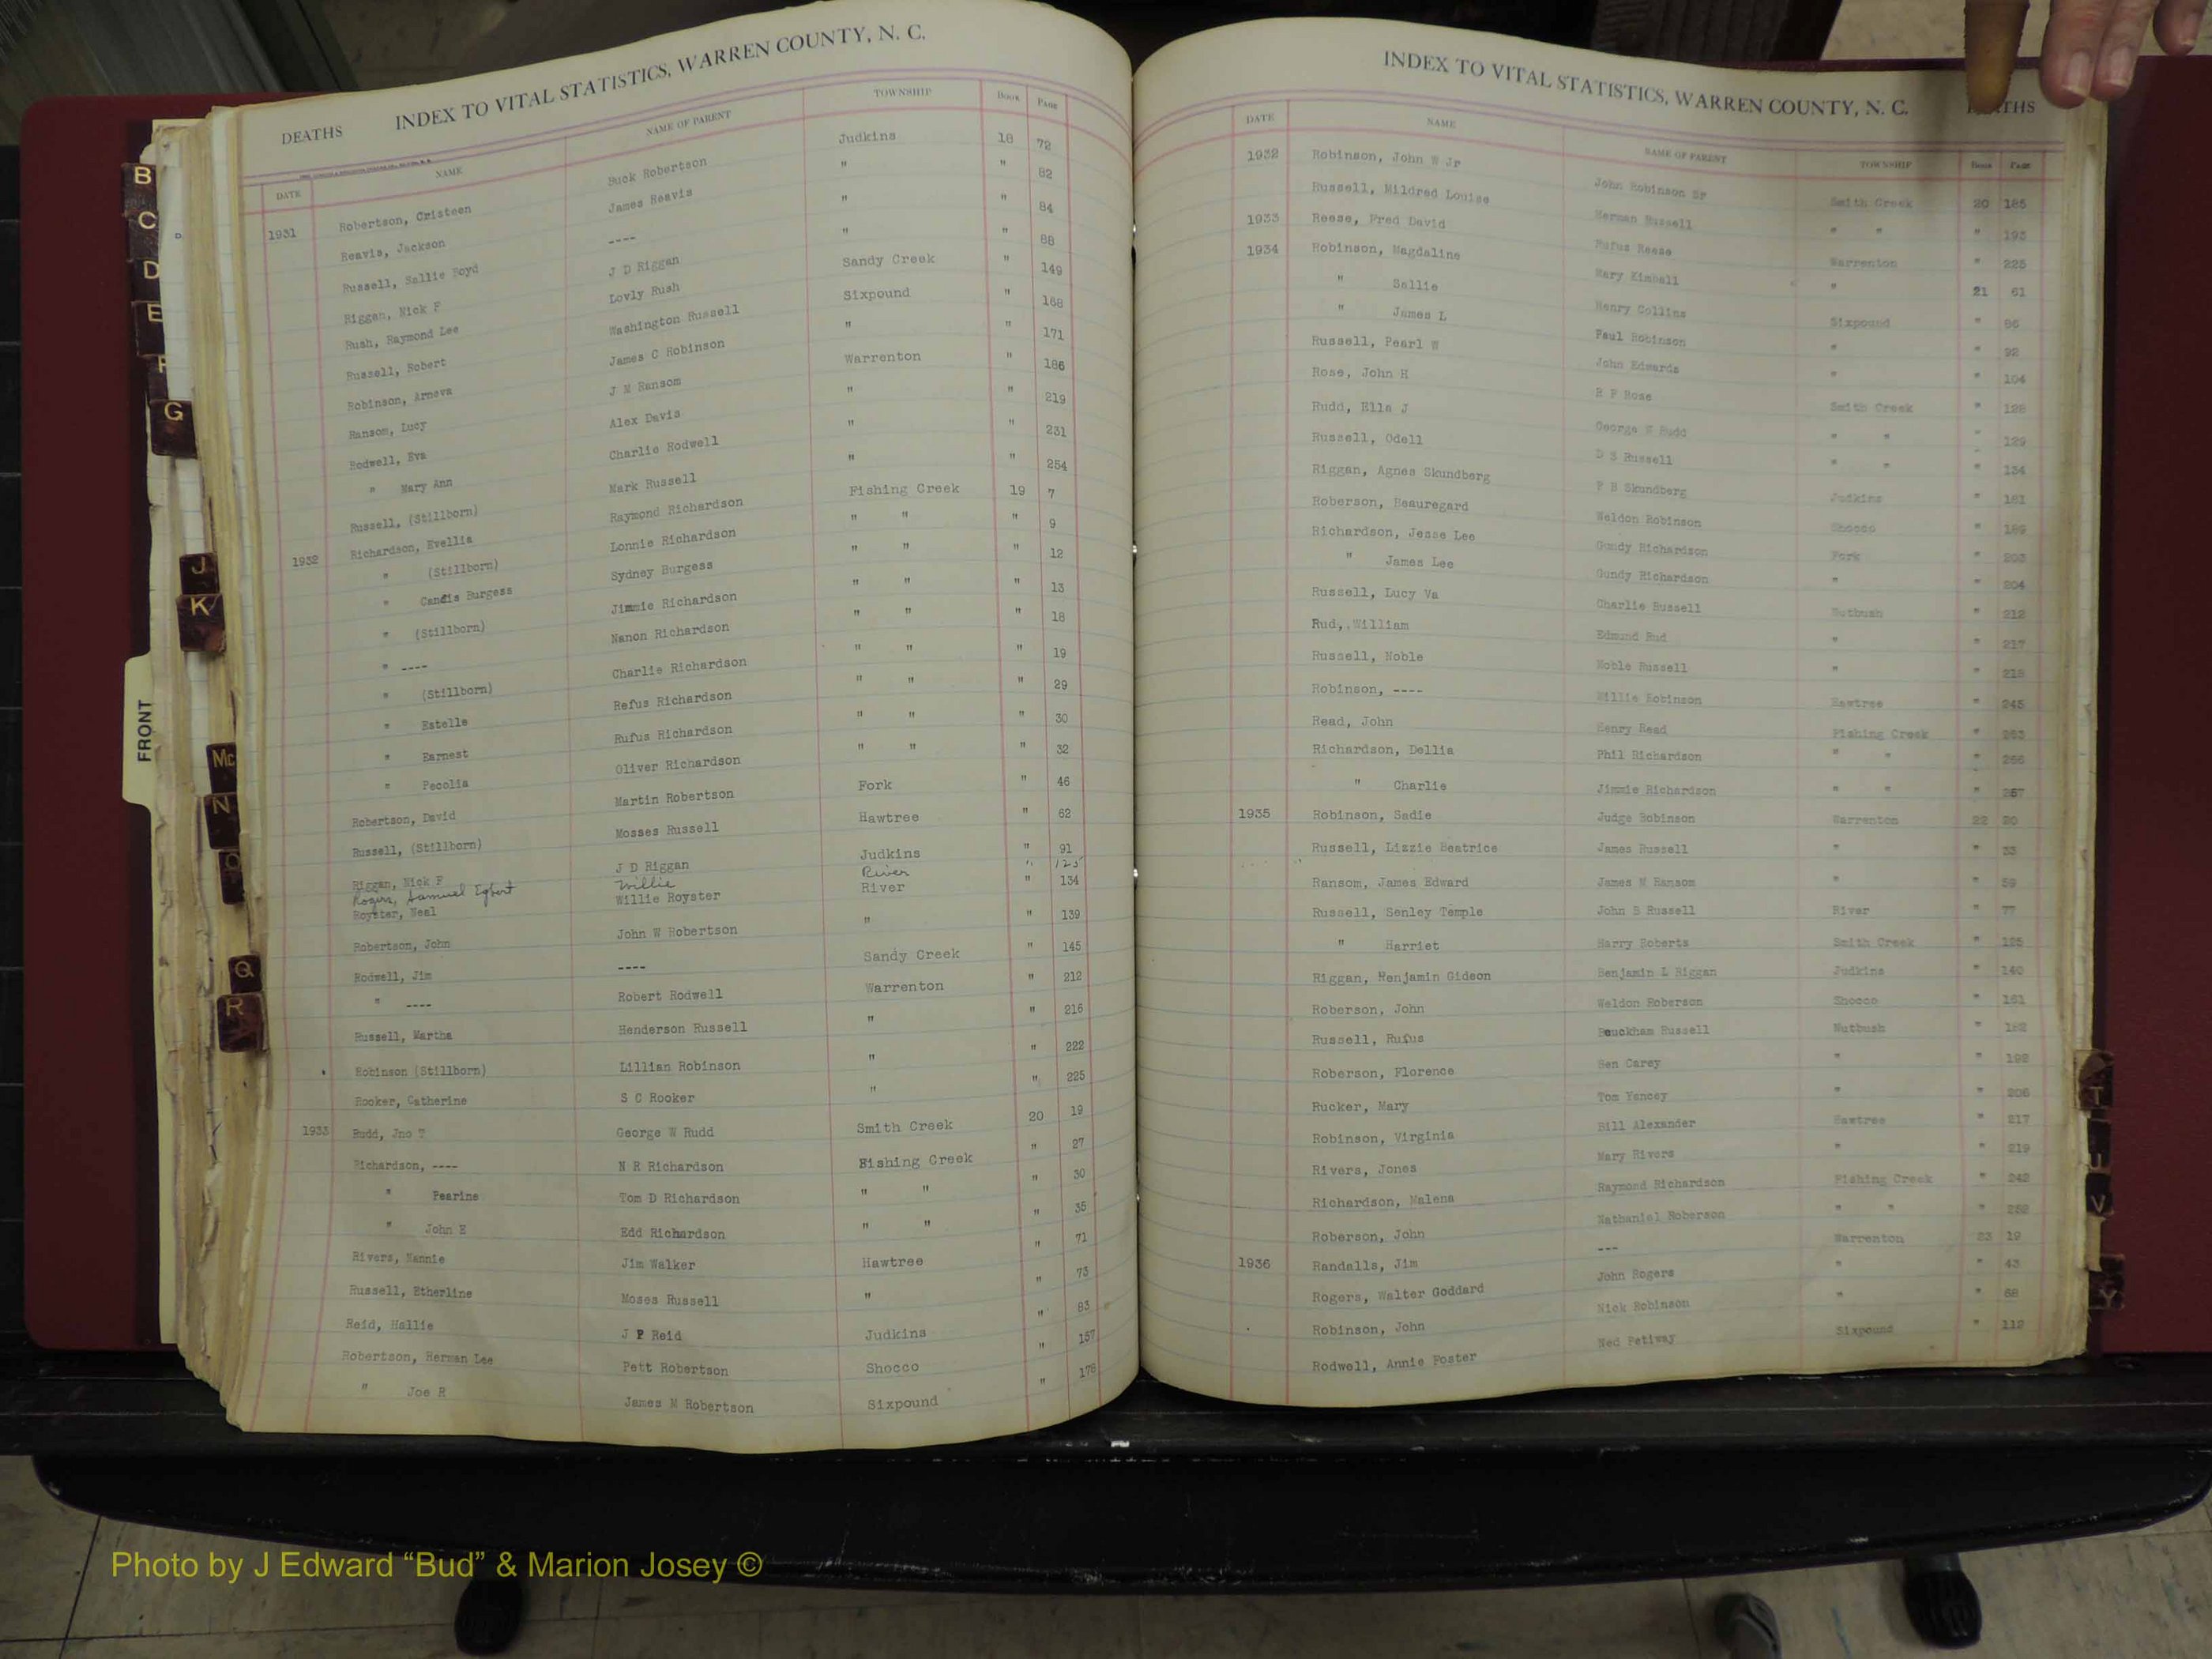 INDEX TO VITAL STATISTICS, WARREN COUNTY, N. C.
DEATHS
DATE NAME NAME OF PARENT TOWNSHIP BOOK PAGE
1931 Robertson, Cristeen Buck Robertson Judkins 18 72
Reavis, Jackson James Reavis " " 82
Russell, Sallie Boyd ---- " " 84
Riggan, Nick F J D Riggan " " 88
Rush, Raymond Lee Lovly Rush Sandy Creek " 149
Russell, Robert Washington Russell Sixpound " 168
Robinson, Arneva James C Robinson " " 171
Ransom, Lucy J M Ransom Warrenton " 186
Rodwell, Eva Alex Davis " " 219
" Mary Ann Charlie Rodwell " " 231
Russell, (Stillborn) Mark Russell " " 254
1932 Richardson, Evellia Raymond Richardson Fishing Creek 19 7
" (Stillborn) Lonnie Richardson " " " 9
" Candis Burgess Sydney Burgess " " " 12
" (Stillborn) Jimmie Richardson " " " 13
" ---- Nanon Richardson " " " 18
" (Stillborn) Charlie Richardson " " " 19
" Estelle Refus Richardson " " " 29
" Earnest Rufus Richardson " " " 30
" Pecolia Oliver Richardson " " " 32
Robertson, David Martin Robertson Fork " 46
Russell, (Stillborn) Mosses Russell Hawtree " 62
Riggan, Nick F J D Riggan Judkins " 91
Rogers, Samuel Egbert Willie River " 125
Royster, Neal Willie Royster River " 134
Robertson, John John W Robertson " " 139
Rodwell, Jim ---- Sandy Creek " 145
" ---- Robert Rodwell Warrenton " 212
Russell, Martha Henderson Russell " " 216
Robinson (Stillborn) Lillian Robinson " " 222
Rooker, Catherine S C Rooker " " 225
1933 Rudd, Jno T George W Rudd Smith Creek 20 19
Richardson, ---- N R Richardson Fishing Creek " 27
" Pearine Tom D Richardson " " " 30
" John E Edd Richardson " " " 35
Rivers, Nannie Jim Walker Hawtree " 71
Russell, Etherline Moses Russell " " 73
Reid, Hallie J P Reid Judkins " 83
Robertson, Herman Lee Pett Robertson Shocco " 157
" Joe R James M Robertson Sixpound " 178
INDEX TO VITAL STATISTICS, WARREN COUNTY, N. C.
DATE NAME NAME OF PARENT TOWNSHIP BOOK PAGE
1932 Robinson, John W Jr John Robinson Sr Smith Creek 20 185
Russell, Mildred Louise Herman Russell " " " 193
1933 Reese, Fred David Rufus Reese Warrenton " 225
1934 Robinson, Magdaline Mary Kimball " 21 61
" Sallie Henry Collins Sixpound " 86
" James L Paul Robinson " " 92
Russell, Pearl W John Edwards " " 104
Rose, John H R F Rose Smith Creek " 128
Rudd, Ella J George W Rudd " " " 129
Russell, Odell D S Russell " " " 134
Riggan, Agnes Skundberg P B Skundberg Judkins " 161
Roberson, Beauregard Weldon Robinson Shocco " 189
Richardson, Jesse Lee Gundy Richardson Fork " 203
" James Lee Gundy Richardson " " 204
Russell, Lucy Va Charlie Russell Nutbush " 212
Rud, William Edmund Rud " " 217
Russell, Noble Noble Russell " " 218
Robinson, ---- Willie Robinson Hawtree " 245
Read, John Henry Read Fishing Creek " 263
Richardson, Dellia Phil Richardson " " " 266
" Charlie Jimmie Richardson " " " 267
1935 Robinson, Sadie Judge Robinson Warrenton 22 20
Russell, Lizzie Beatrice James Russell " " 33
Ransom, James Edward James W Ransom " " 59
Russell, Senley Temple John B Russell River " 77
" Harriet Harry Roberts Smith Creek " 125
Riggan, Benjamin Gideon Benjamin L Riggan Judkins " 140
Roberson, John Weldon Roberson Shocco " 161
Russell, Rufus Beuckham Russell Nutbush " 182
Roberson, Florence Ben Carey " " 198
Rucker, Mary Tom Yancey " " 206
Robinson, Virginia Bill Alexander Hawtree " 217
Rivers, Jones Mary Rivers " " 219
Richardson, Malena Raymond Richardson Fishing Creek " 242
Roberson, John Nathaniel Roberson " " " 252
1936 Randalls, Jim --- Warrenton 23 19
Rogers, Walter Goddard John Rogers " " 43
Robinson, John Nick Robinson " " 68
Rodwell, Annie Foster Ned Petiway Sixpound " 112
B
C
D
E
F
G
J
K
FRONT
Mc
N
O
Q
R
T
U
V
Y
Photo by J Edward “Bud” & Marion Josey ©